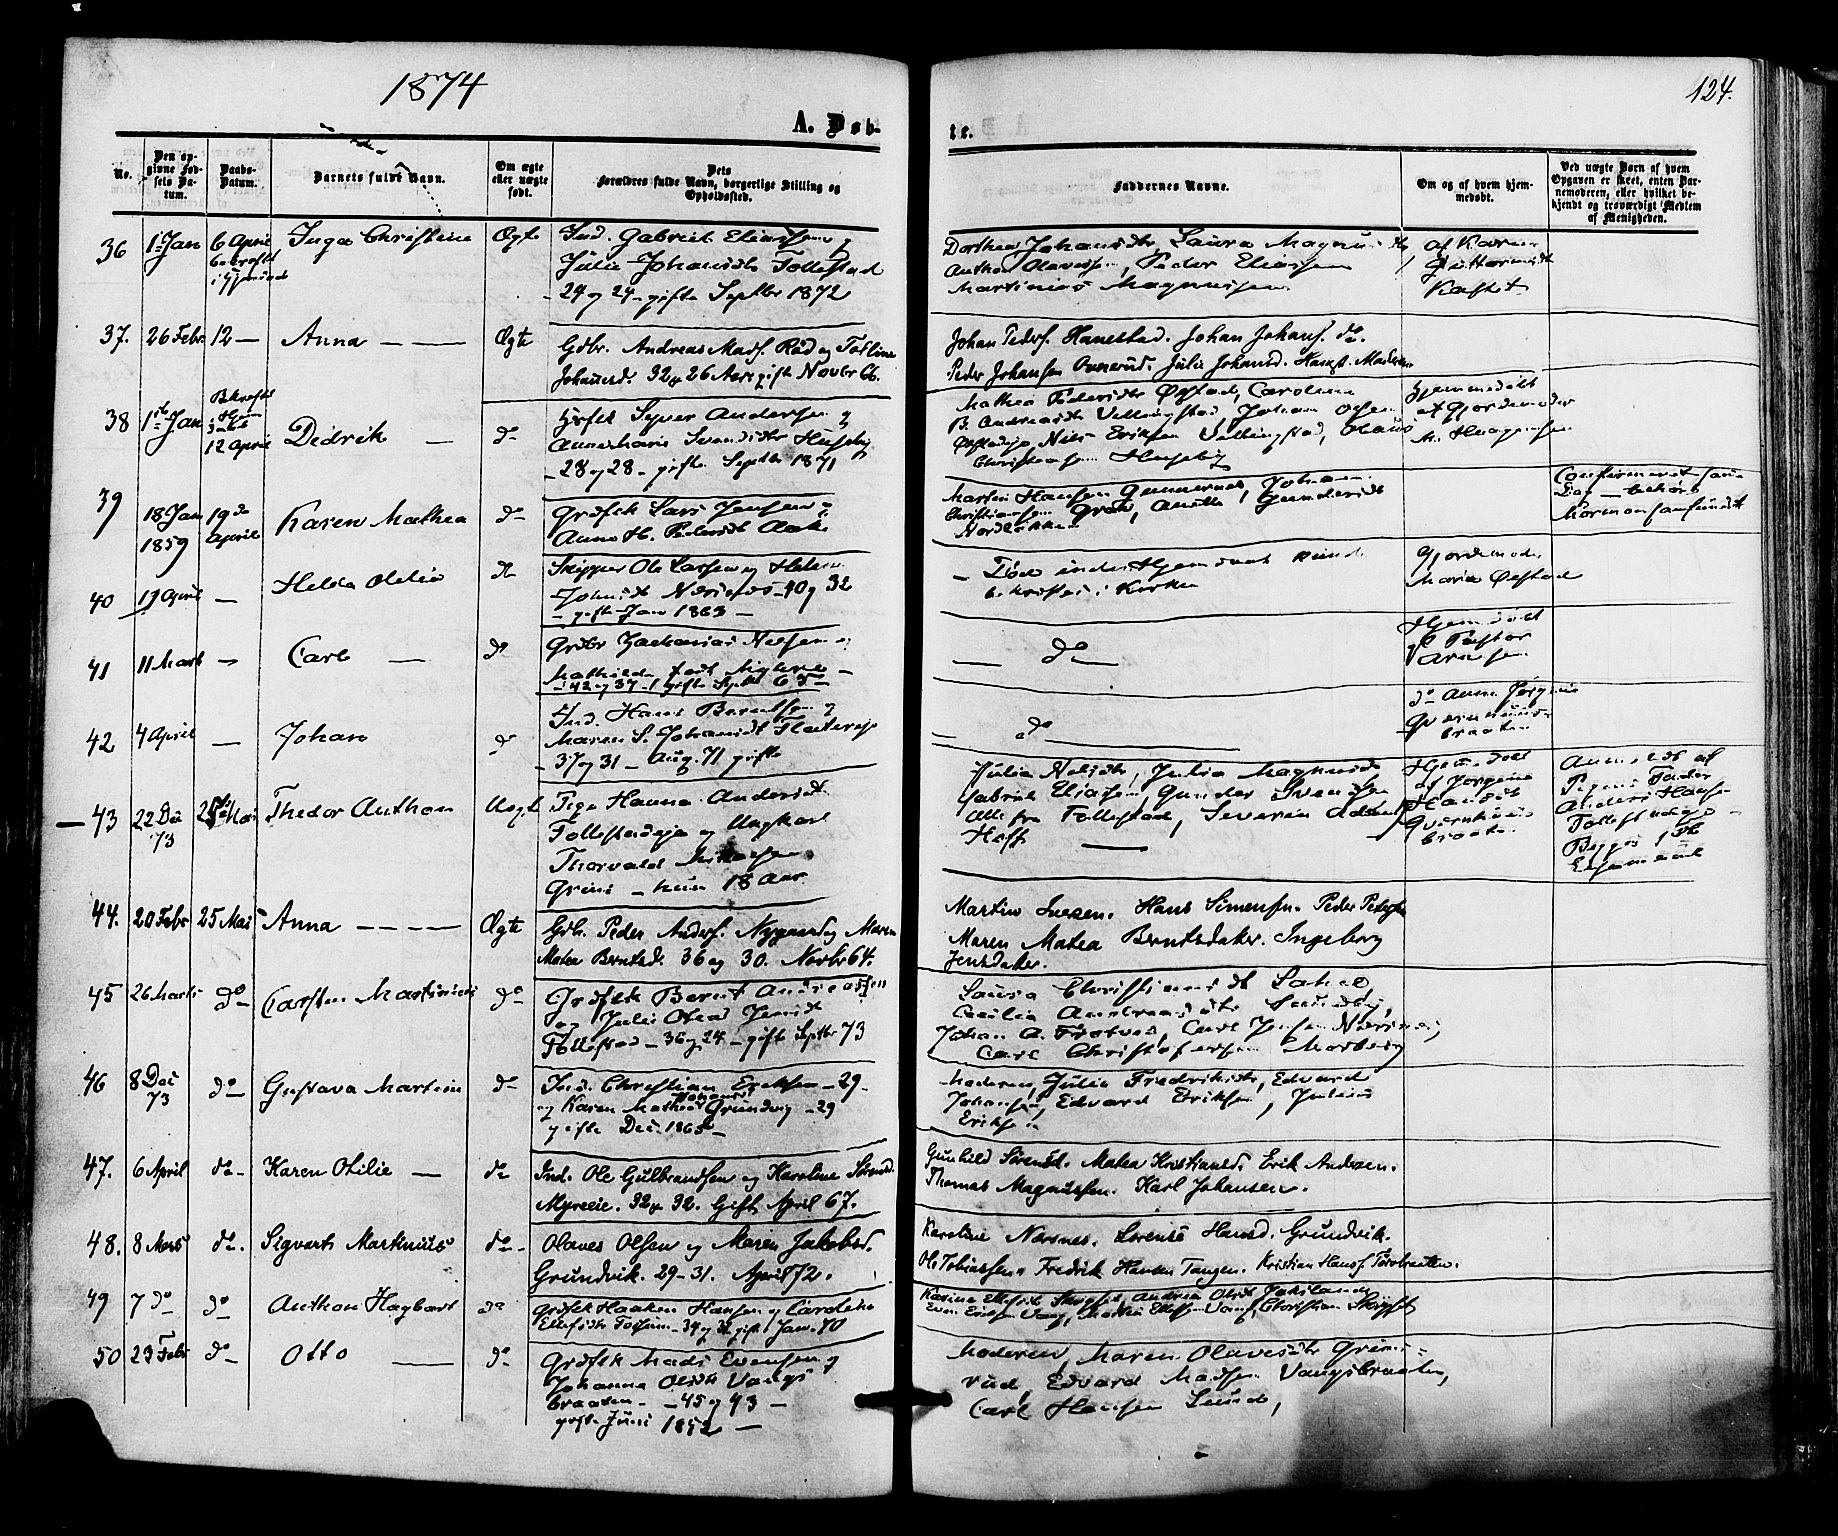 1874
124.
A. Døb-
te.
No.
Den op-
givne Fød-
sels Da-
tum.
Daabs-
Datum.
Barnets fulde Navn.
Om ægte
eller uægte
født.
Dets
Forældres fulde Navn, borgerlige Stilling og
Opholdssted.
Faddernes Navne.
Om og af hvem hjem-
medøbt.
Ved uægte Børn af hvem
Opgaven er skeet, enten Bar-
nemoderen, eller hvilket be-
kjendt og troværdigt Medlem
af Menigheden.
36 1 Jan 6 April Inga Christine Ægte Ind. Gabriel Eliassen og
Julie Johansdtr Follestad
24 og 24 - gifte Septbr 1872
Dorthea Johansdtr, Laura Magnusdtr
Anthon Olavessen, Peder Eliassen
Martinius Magnussen
af Karen
37. 26 Febr 12 — Anna — Ægte Gdbr. Andreas Mads. Rød og Torline
Johansd. 32 & 26 Aar gift Novbr 66.
Johan Peders. Hanestad. Johan Johans. do.
Peder Johansen Julie Johansd. Moderen
38 1 Jan 12 April Didrik — do Syver Andersen og
Annemarie Svendsdtr Huseby
28 og 28 - gifte Septbr 1871
Mathea Pedersdtr Øfstad, Caroline
B. Andreasdtr Vellingstad, Johan Olsen
Nils Eriksen Vellingstad, Olaus
Christiansen Huseby
hjemmedøbt
af Gjordemoder
M. Haagensen
39 18 Jan 1859 19de April Karen Mathea do Grdfsk Lars Jensen og
Anne H. Pedersdt Aake
Martin Hansen Johan
Christiansen Grøv, Gundersdt
Confirmeret
Mormonsamfundet
40 19 April — Helda Otilia do Skipper Ole Larsen og Helene
Johnsdt Nærsnes 40 og 32
gifte Jan 1863 —
— Død inden Hjemdaab kund
bekræftes i Kirken
Gjordemoder
Maria Øfstad
41 11 Marts — Carl — do Grdbr Zacharias Nilsen og
Mathilde født
42 og 37 - gifte Septbr 65
— do —
Hjemdøbt
af Pastor
Arnesen
42 4 April — Johan do Ind. Hans Berntsen og
Maren S. Johansdt
37 og 31 — Aug. 71 gifte
— do —
do Anne Jørgine
Qvernhuus-
braaten
43 22 Dec 73 25 Mai Thedor Anthon Uægt Pige Hanna Andersdt
Follestadeje og Ungkarl
Thorvald Mikkelsen
Grini — hun 18 Aar
Julia Nilsdtr, Julia Magnusdt
Gabriel Eliasen, Gunder Svensen
Alle fra Follestad, Severin
Hoff —
Hjemdøbt
af Jørgine
Hansdt
Qvernhuus
braaten
Anmeldt af
Pigens Fader
Anders Hansen
Follestadeje
Begges 1ste
44. 20 Febr 25 Mai Anna — Ægte Gdb. Peder Anders. Nygaard og Maren
Matea Berntsd. 36 og 30. Novbr 64.
Martin Iversen. Hans Simensen. Peder Pedersen
Maren Matea Berntsdater. Ingeborg
Jensdater.
45 26 Marts do Carsten Martinius do Grdfsk Bernt Andreassen
og Julie Olea Jensdt
Follestad — 36 og 24 — gifte Septbr 73
Laura Christiansdt
Cecilia Andreasdtr
Johan A. Carl Jensen Nærsnes,
Carl Christofersen Morberg
46 8 Dec 73 do Gustava Martine do Ind. Christian Eriksen — 29 -
og Karen Mathea Johansdt Grundvig — 29
gifte Dec. 1865 —
Moderen, Julia Fredriksdtr, Edvard
Johansen, Edvard Eriksen, Julius
Eriksen
47. 6 April do Karen Otilie — do Ind. Ole Gulbrandsen og Karoline Sørensd.
Myreeie. 32 & 32. Gift April 67.
Gunhild Sørensd. Matea Kristiansd. Erik Andersen.
Thomas Magnussen. Karl Johansen.
48. 8 Marts do. Sigvart Martinius do Olaves Olsen og Maren Jakobsd.
Grundvik. 29-31. April 72.
Karoline Nærsnes. Lorense Hansd. Grundvik.
Ole Tobiassen. Fredrik Hansen Tangen. Kristian Hans.
49 7 do do Anthon Hagbart do Grdfsk Haaken Hansen og Caroline
Ellefsdtr — 34 og 32 gift Jan. 70
Karine Ellefsdtr Andrea Olsdt
Even Eriksen Vang, Mathis Ellefsen Vang, Christian
50 23 Febr do Otto — do Grdfsk Mads Evensen og
Johanne Olsdt Vangs-
braaten — 45 og 43 —
gifte Juni 1852 —
Moderen, Maren Olavesdtr Grims-
rud, Edvard Madsen Vangsbraaten,
Carl Hansen Lund,